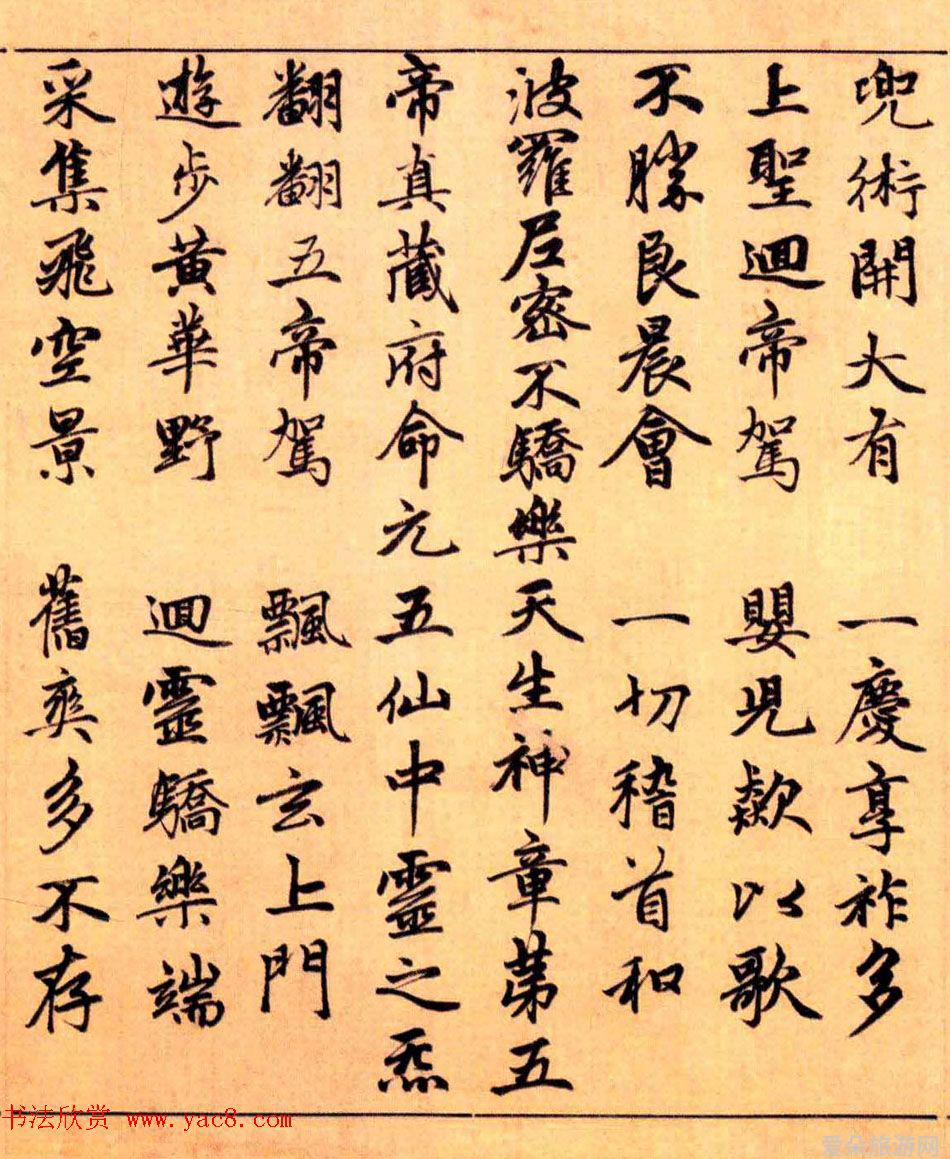 兜術開大有 一慶享祚多
上聖迴帝駕 嬰兒歘以歌
不勝良晨會 一切稽首和
波羅尼密不驕樂天生神章第五
帝真藏府命元五仙中靈之炁
翻翻五帝駕 飄飄玄上門
遊步黃華野 迴靈驕樂端
采集飛空景 舊爽多不存
书法欣赏 www.yac8.com
爱朵旅游网